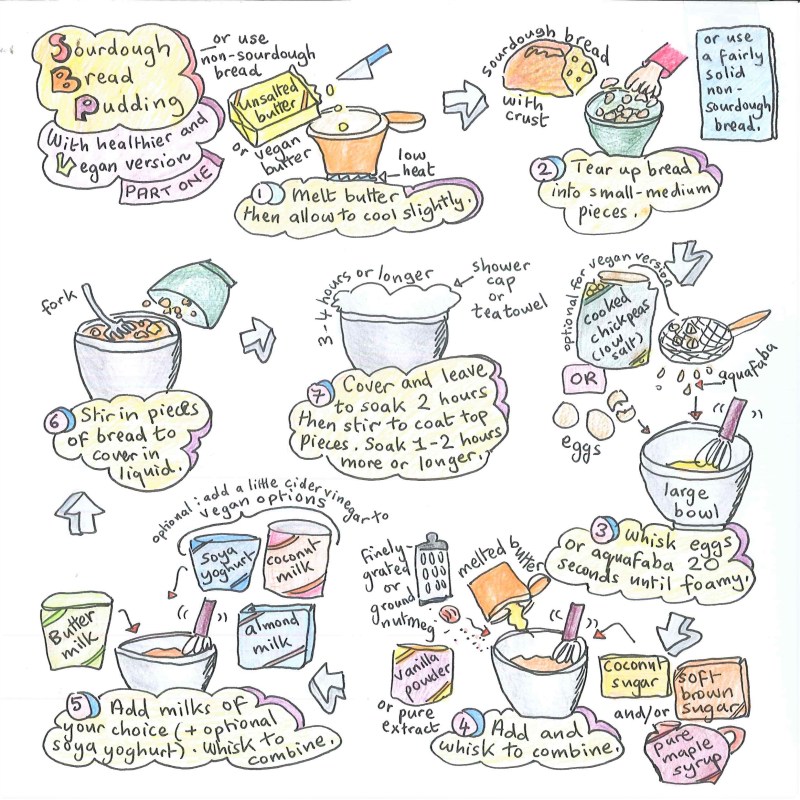 Sourdough
Bread
Pudding
With healthier and
Vegan version
PART ONE
or use
non-sourdough
bread
unsalted
butter
or vegan
butter
low
heat
1 Melt butter
then allow to cool slightly.
sourdough bread
with
crust
or use
a fairly
solid
non-
sourdough
bread.
2 Tear up bread
into small-medium
pieces.
optional for vegan version
cooked
chickpeas
(low
salt)
aquafaba
OR
eggs
large
bowl
3 whisk eggs
or aquafaba 20
seconds until foamy.
finely
grated
or
ground
nutmeg
melted butter
vanilla
powder
or pure
extract
coconut
sugar
soft
brown
sugar
and/or
pure
maple
syrup
4 Add and
whisk to combine.
optional: add a little cider vinegar to
vegan options
soya
yoghurt
coconut
milk
Butter
milk
almond
milk
5 Add milks of
your choice (+ optional
soya yoghurt). Whisk to
combine.
fork
6 Stir in pieces
of bread to
cover in
liquid.
3-4 hours or longer
shower
cap
or
teatowel
7 Cover and leave
to soak 2 hours
then stir to coat top
pieces. Soak 1-2 hours
more or longer.